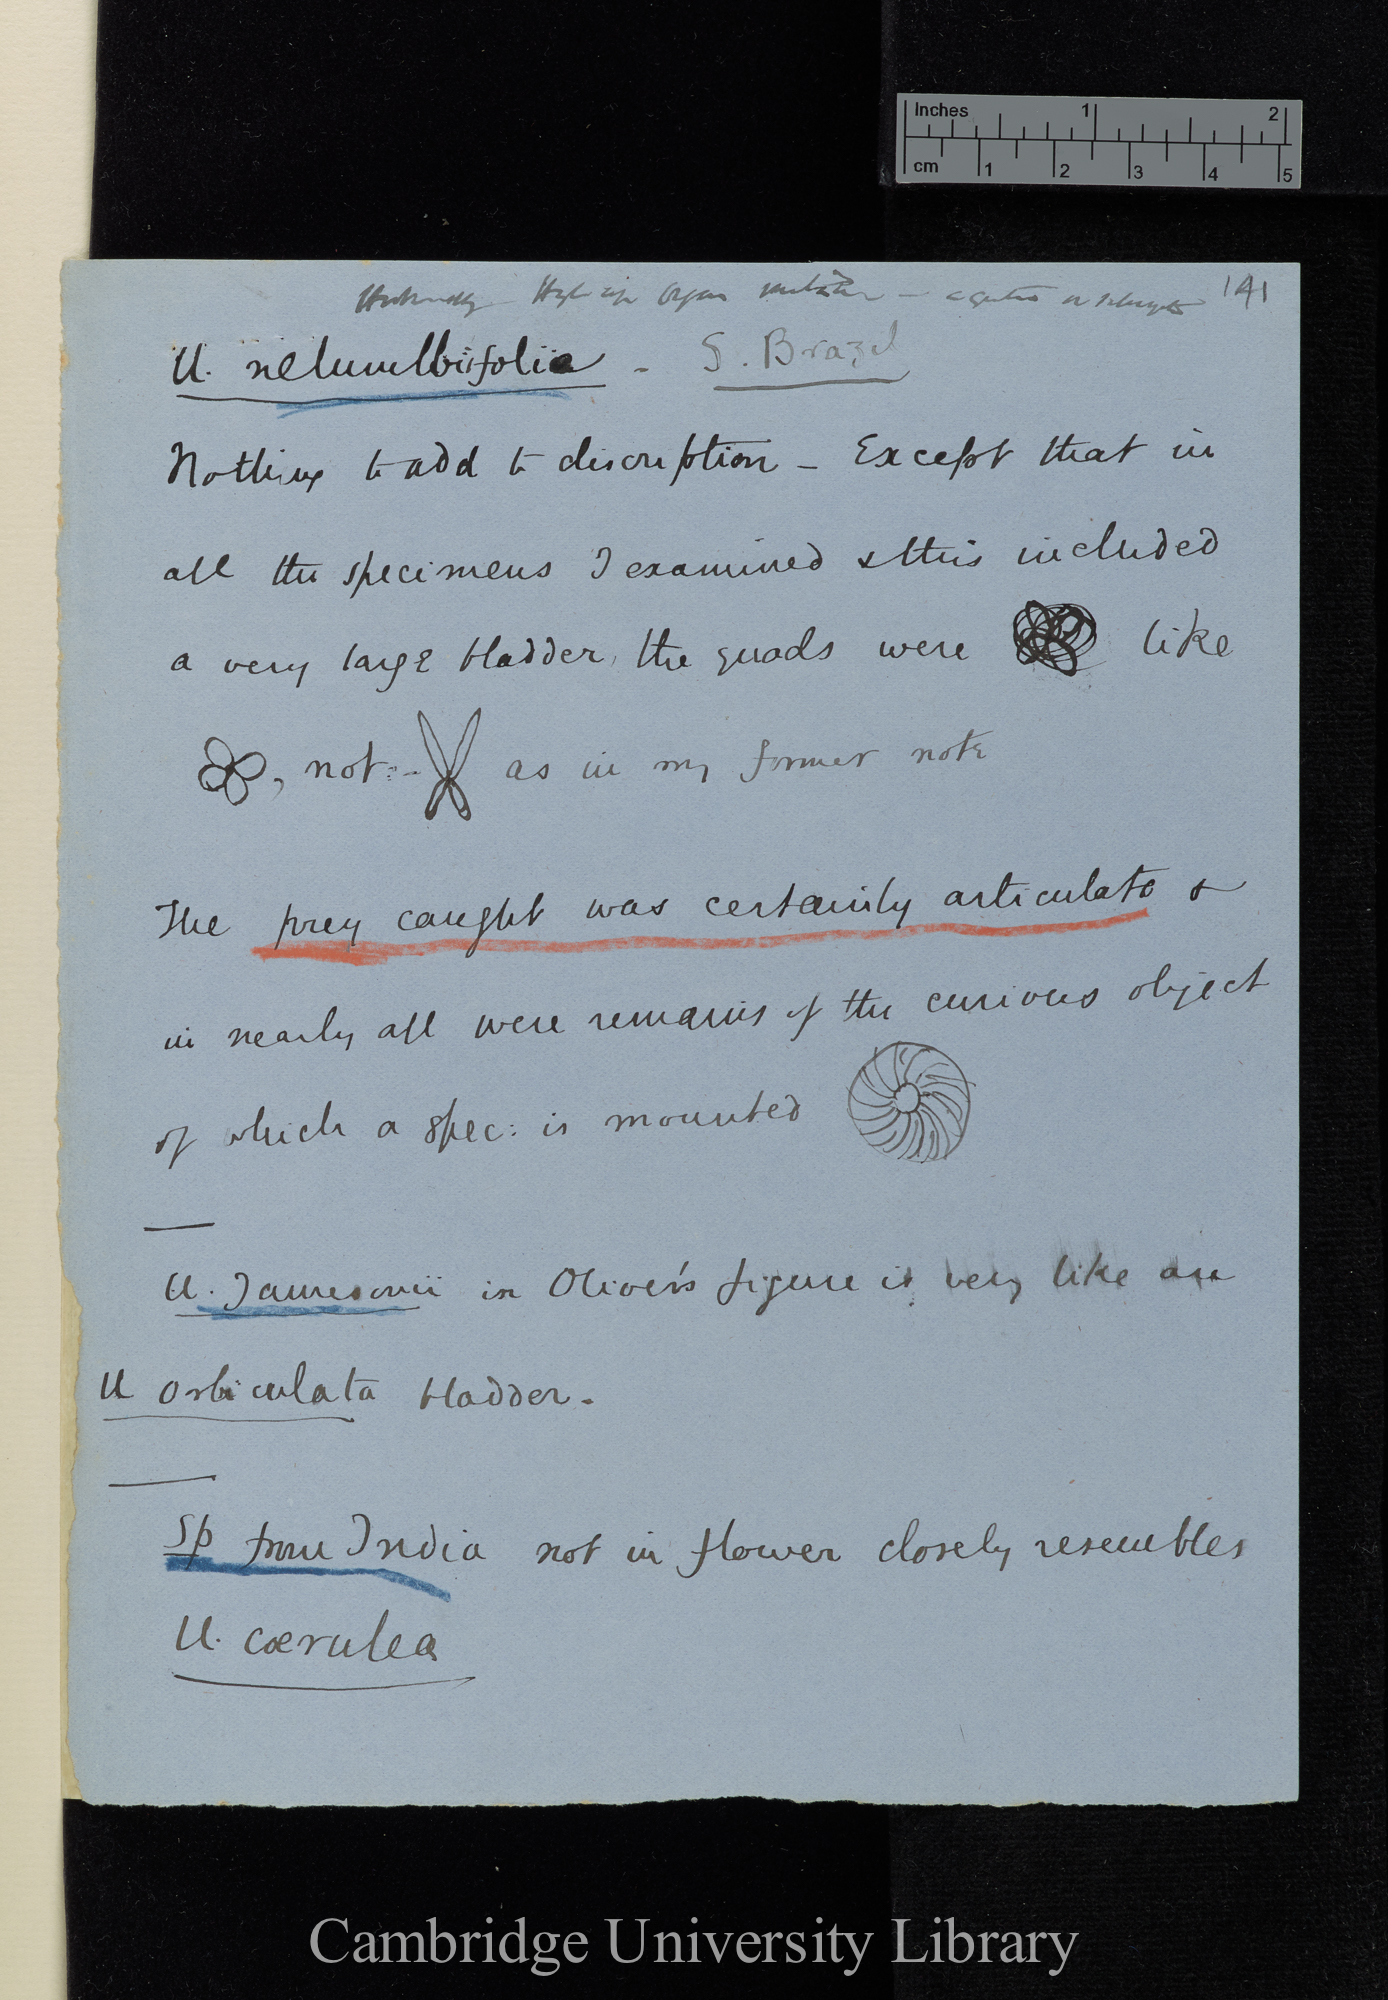 Inches 1 2
cm 1 2 3 4 5
Organ 141
U. nelumbiifolia - S. Brazil
Nothing to add to discription - Except that in
all the specimens I examined & this included
a very large bladder, the quads were like
, not :- as in my former note
The prey caught was certainly articulate &
in nearly all were remains of the curious object
of which a spec: is mounted
U. Jamesonii in Oliver's figure is very like an
U orbiculata bladder.
Sp from India not in flower closely resembles
U. cœrulea
Cambridge University Library